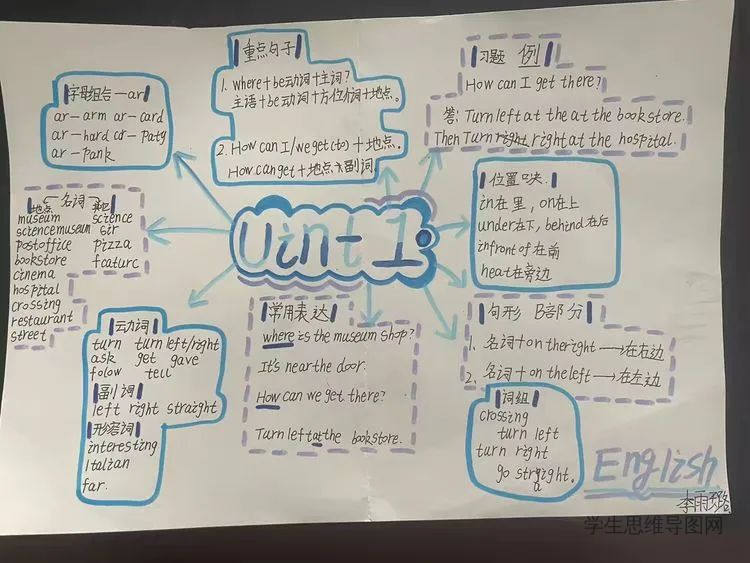 字母组合-ar
ar-arm ar-card
ar-hard ar-paty
ar-pank
重点句子
1. where+be动词+主词?
主语+be动词+方位介词+地点。
2. How can I/we get(to)+地点。
How can get+地点+副词。
习题 例
How can I get there?
答: Turn left at the at the bookstore.
Then Turn right, right at the hospital.
地点 名词 其他
museum science
sciencemuseum sir
postoffice pizza
bookstore featurc
cinema
hospital
crossing
restaurant
street
Uint 1
位置
in在里, on在上
under在下, behind在后
infrontof在前
heat在旁边
动词
turn turn left/right
ask get gave
folow tell
副词
left right straight
形容词
interesting
Italian
far.
常用表达
where is the museum shop?
It's near the door.
How can we get there?
Turn left at the bookstore.
句形 B部分
1、名词+on theright→在右边
2、名词+on theleft→在左边
词组
crossing
turn left
turn right
go straight.
English
李雨璐
学生思维导图网